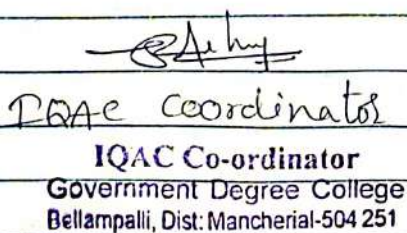 IQAC Coordinator
IQAC Co-ordinator
Government Degree College
Bellampalli, Dist: Mancherial-504 251